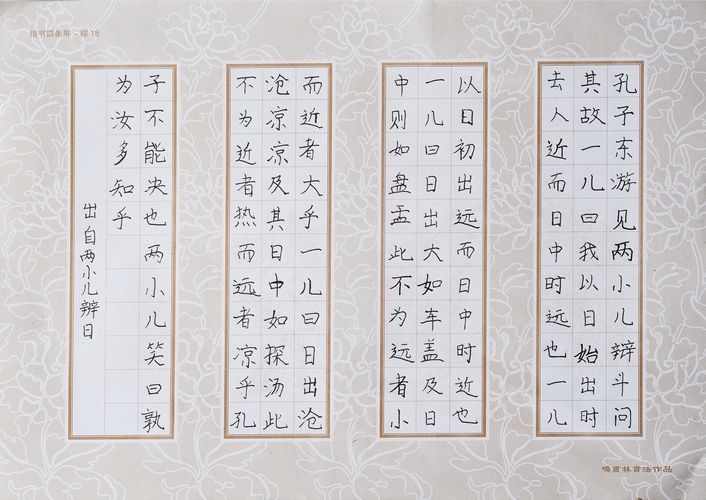 楷书四条屏-棕18
孔子东游见两小儿辩斗问
其故一儿曰我以日始出时
去人近而日中时远也一儿
以日初出远而日中时近也
一儿曰日出大如车盖及日
中则如盘盂此不为远者小
而近者大乎一儿曰日出沧
沧凉凉及其日中如探汤此
不为近者热而远者凉乎孔
子不能决也两小儿笑曰孰
为汝多知乎
出自两小儿辩日
林書法作品